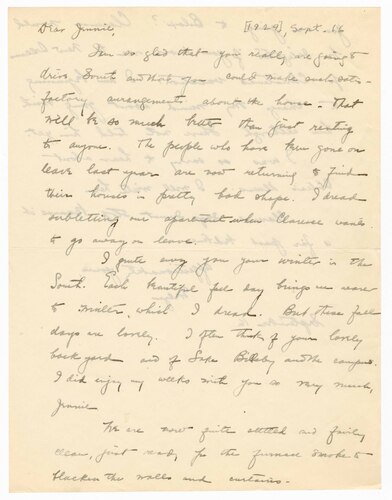 [1929], Sept. 16
Dear Jennie,
I'm so glad that you really are going to
drive South and that you could make such satis-
factory arrangements about the house. That
will be so much better than just renting
to anyone. The people who have been gone on
leave last year are now returning to find
their houses in pretty bad shape. I dread
subletting our apartment when Clarence wants
to go away on leave.
I quite envy you your winter in the
South. Each beautiful fall day brings us nearer
to winter, which I dread. But these fall
days are lovely. I often think of your lovely
back yard and of Lake and the campus.
I did enjoy my weeks with you so very much,
Jennie
We are now quite settled and fairly
clean, just ready for the furnace smoke to
blacken the walls and curtains.